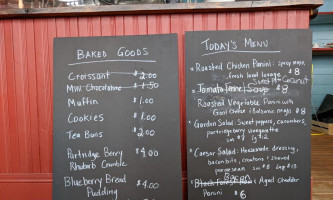 BAKED GOODS
Croissant $2.00
Mini Chocolatine $1.50
Muffin $1.00
Cookies $1.00
Tea Buns $2.00
Partridge Berry $4.00
Rhubarb Crumble
Blueberry Bread $4.00
Pudding
TODAY'S MENU
Roasted Chicken Panini: spicy mayo,
fresh local lettuce $8
Sweet Pt-Coconut
Tomato Fennel Soup $8
Roasted Vegetable Panini with
Goat Cheese & Balsamic mayo $8
Garden Salad: Sweet peppers, cucumbers,
partridgeberry vinaigrette
sm $9
Caesar Salad: Housemade dressing,
bacon bits, croutons & shaved
parmesan sm $8
BREAD
Aged Cheddar
Panini $6